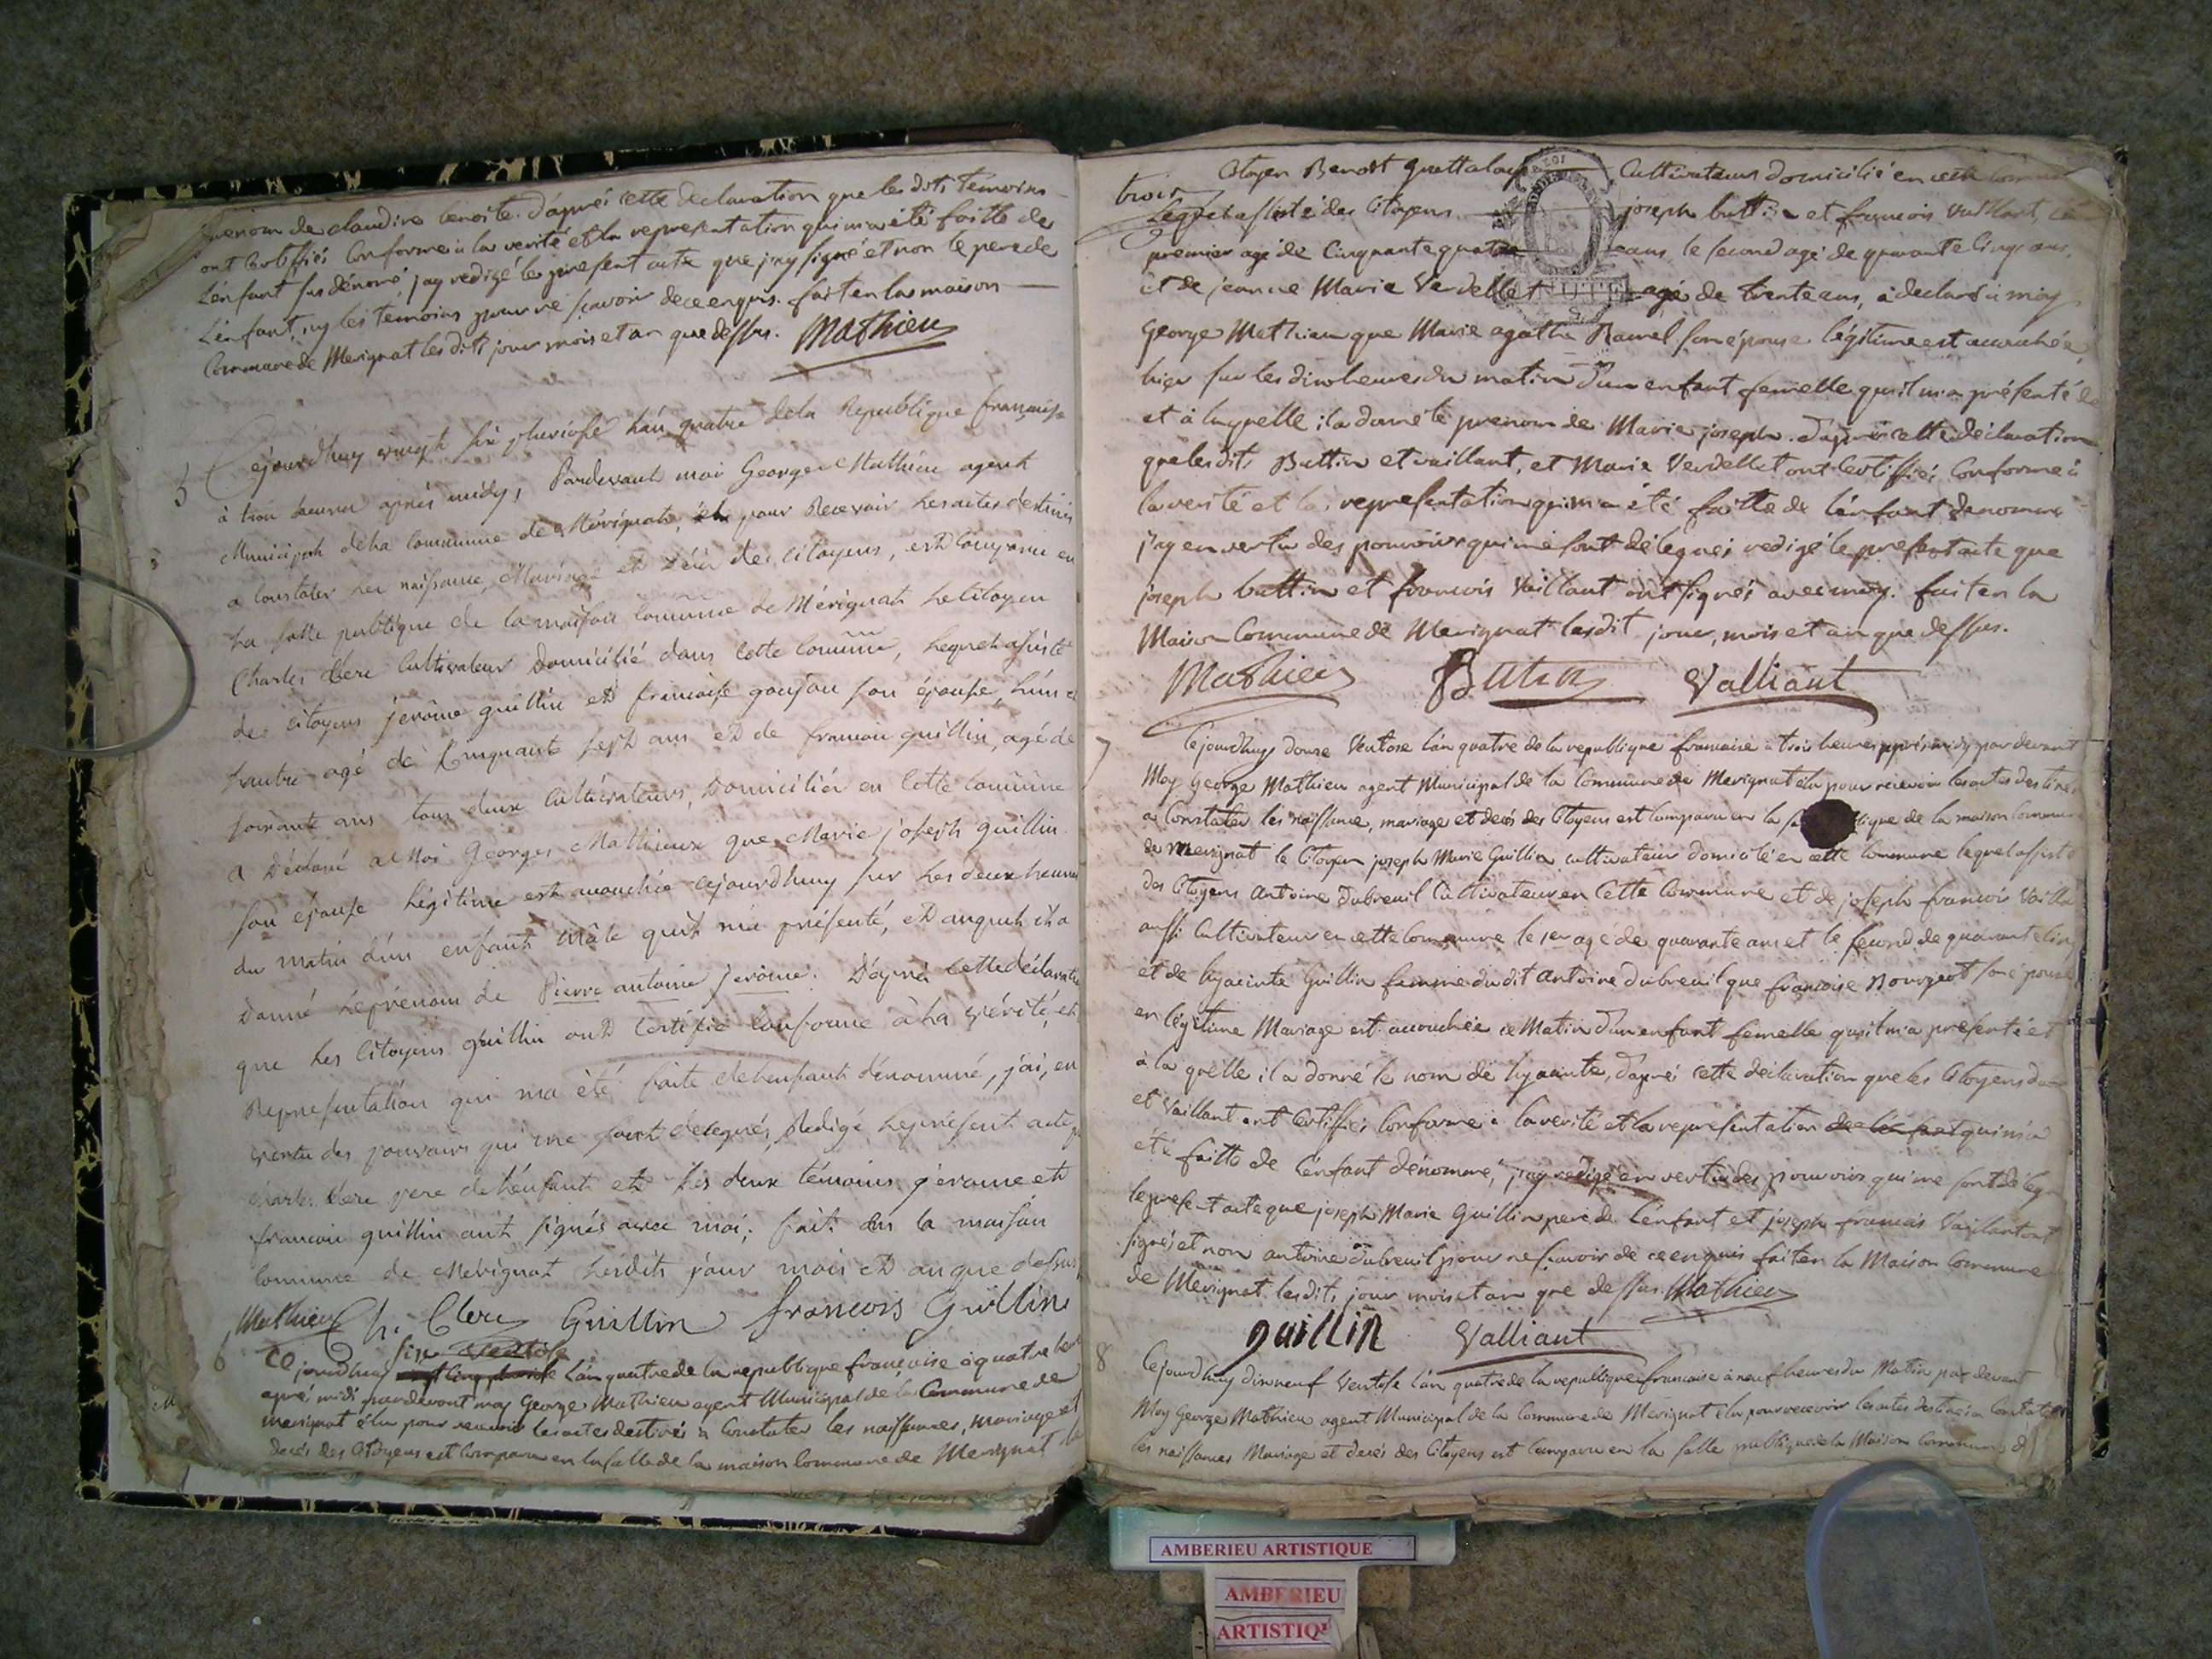 prenom de claudine benoite. d'aprés cette declaration que les dits témoins
ont certiffiés conforme à la verité et la representation qui m'a été faitte de
l'énfant sus dénomé j'ay redigé le present acte que j'ay signé et non le pere de
l'énfant, ny les témoins pour ne sçavoir de ce enquis. fait en la maison
Commune de Merignat les dits jour mois et an que dessus. Mathieu
5 Cejourdhuy vingt six pluviose l'an quatre de la Republique française
à trois heures après midy, Pardevant moi George Mathieu agent
Municipal de la commune de Mérignat, élu pour Recevoir les actes destinés
a constater les naissance, Mariage et Décès des citoyens, est comparu en
la salle publique de la maison commune de Mérignat le Citoyen
Charles Clerc Cultivateur Domicilié dans cette commune, lequel assisté
des citoyens jerôme guillin et françoise goujon son épouse, l'un et
l'autre agé de Cinquante sept ans et de francois guillin, agé de
soixante ans tous deux cultivateurs, Domiciliés en cette commune
a Déclaré a Moi Georges Mathieux que Marie joseph guillin
son épouse légitime est accouchée cejourdhuy sur les deux heures
du matin d'un enfant mâle qu'il m'a présenté, et auquel il a
Donné le prénom de Pierre antoine jerôme. D'après cette déclaration
que les citoyens guillin ont certifié conforme à la vérité, et
Representation qui m'a été faite de l'enfant dénommé, j'ai, en
vertu des pouvoirs qui me sont délegués, Redigé le présent acte
charles Clerc pere de l'énfant et les deux témoins gérome et
francois guillin ont signés avec moi; fait en la maison
commune de Merignat lesdits jour mois et an que dessus
Mathieu Ch. Clerc Guillin francois Guillin
6 Cejourdhuy six ventose l'an quatre de la republique françoise à quatre heures
aprés midi pardevant moy George Mathieu agent Municipal de la Commune de
merignat élu pour recevoir les actes destinés à Constater les naissances, mariage et
decés des Citoyens est Comparu en la salle de la maison Commune de Merignat le
trois
Citoyen Benoit Cultivateur domicilié en cette commune
Lequel assisté des Citoyens joseph buttin et francois Vaillant, le
premier agé de Cinquante quatre ans, le second agé de quarante Cinq ans,
et de jeanne Marie Verdellet agé de trente ans, a declaré à moy
George Mathieu que Marie agathe Ramel son épouse légitime est accouchée,
hier sur les dix heures du matin d'un enfant femelle qu'il m'a présenté
et à laquelle il a donné le prenom de Marie joseph. d'aprés cette déclaration
que lesdits Buttin et vaillant, et Marie Verdellet ont Certiffiés Conforme à
la verité et la representation qui m'a été faitte de l'énfant denomme
j'ay en vertu des pouvoirs qui me sont délegués redigé le present acte que
joseph buttin et francois Vaillant ont signés avec moy. fait en la
Maison Commune de Merignat lesdit jour, mois et an que dessus.
Mathieu Butin Valliant
7 Cejourdhuy douze Ventose l'an quatre de la republique francaise à trois heures apprés midy par devant
Moy George Mathieu agent Municipal de la Commune de Merignat élu pour recevoir les actes destinés
a Constater les naissance, mariage et decés des Citoyens est Comparu en la de la maison Commune
de Merignat le Citoyen joseph Marie Guillin cultivateur domicilié en cette Commune lequel assisté
des Citoyens Antoine Dubreuil Cultivateur en Cette Commune et de joseph francois Vaillant
aussi Cultivateur en cette Commune le 1er agé de quarante ans et le second de quarante cinq
et de hyacinte Guillin femme dudit Antoine Dubreuil que françoise Bourgeot son épouse
en légitime Mariage est accouchée ce Matin d'un enfant femelle qu'il m'a presenté et
à la quelle il a donné le nom de hyacinte, d'aprés cette déclaration que les Citoyens
et Vaillant ont Certiffiés Conforme à la verité et la representation qui m'a
été faitte de l'énfant dénommé, j'ay redigé en vertu des pouvoirs qui me sont délegués
le present acte que joseph Marie Guillin pere de l'énfant et joseph francois Vaillant ont
signés et non antoine Dubreuil pour ne scavoir de ce enquis fait en la Maison Commune
de Mérignat lesdits jour mois et an que dessus. Mathieu
guillin Valliant
8 Cejourdhuy dixneuf Ventose l'an quatre de la republique francaise à neuf heures du Matin par devant
Moy George Mathieu agent Municipal de la Commune de Merignat élu pour recevoir les actes destinés à Constater
les naissances Mariage et decés des Citoyens est Comparu en la salle publique de la Maison Commune d
AMBERIEU ARTISTIQUE
AMBERIEU
ARTISTIQ